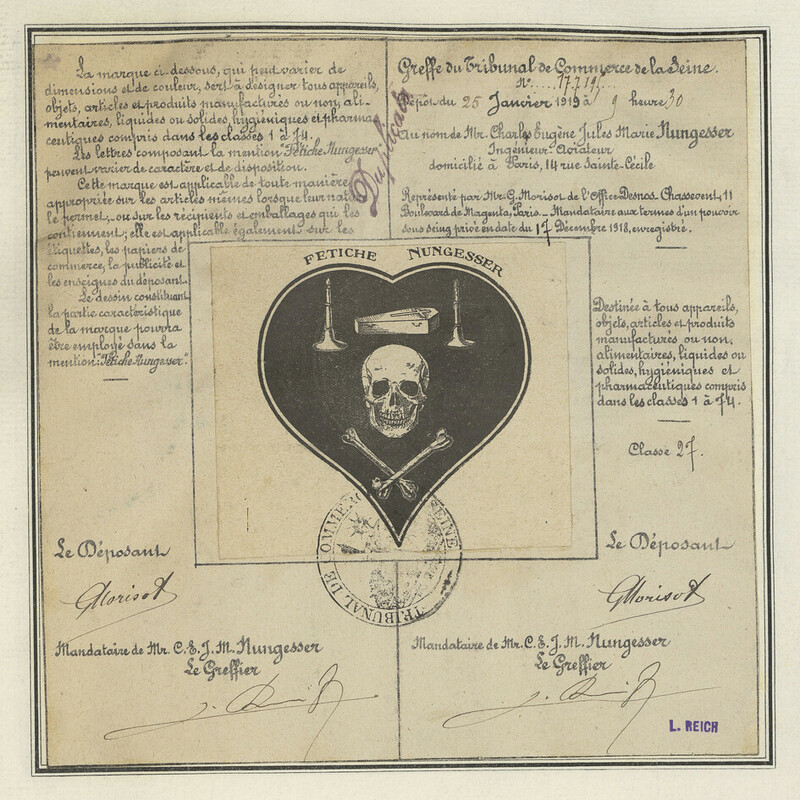 La marque ci-dessous, qui peut varier de
dimensions et de couleur, sert à désigner tous appareils,
objets, articles et produits manufacturés ou non, ali-
mentaires, liquides ou solides, hygiéniques et pharma-
ceutiques compris dans les classes 1 à 74.
Les lettres composant la mention "Fétiche Nungesser"
peuvent varier de caractère et de disposition.
Cette marque est applicable de toute manière
appropriée sur les articles mêmes lorsque leur nature
le permet, ou sur les récipients et emballages qui les
contiennent; elle est applicable également sur les
étiquettes, les papiers de
commerce, la publicité et
les enseignes du déposant.
Le dessin constituant
la partie caractéristique
de la marque pourra
être employé sans la
mention: "Fétiche Nungesser".
Duplicata
Greffe du Tribunal de Commerce de la Seine.
Dépôt du 25 Janvier 1919 à 9 heure 30
Au nom de Mr. Charles Eugène Jules Marie Nungesser
Ingénieur-Aviateur
domicilié à Paris, 14 rue Sainte-Cécile
Représenté par Mr. G. Morisot de l'Office Desnos-Chassevent, 11
Boulevard de Magenta, Paris — Mandataire aux termes d'un pouvoir
sous seing privé en date du 17 Décembre 1918, enregistré.
FETICHE NUNGESSER
Destinée à tous appareils,
objets, articles et produits
manufacturés ou non,
alimentaires, liquides ou
solides, hygiéniques et
pharmaceutiques compris
dans les classes 1 à 74.
Classe 27.
TRIBUNAL DE COMMERCE SEINE
Le Déposant
GMorisot
Mandataire de Mr. C. E. J. M. Nungesser
Le Greffier
Le Déposant
GMorisot
Mandataire de Mr. C. E. J. M. Nungesser
Le Greffier
L. REICH